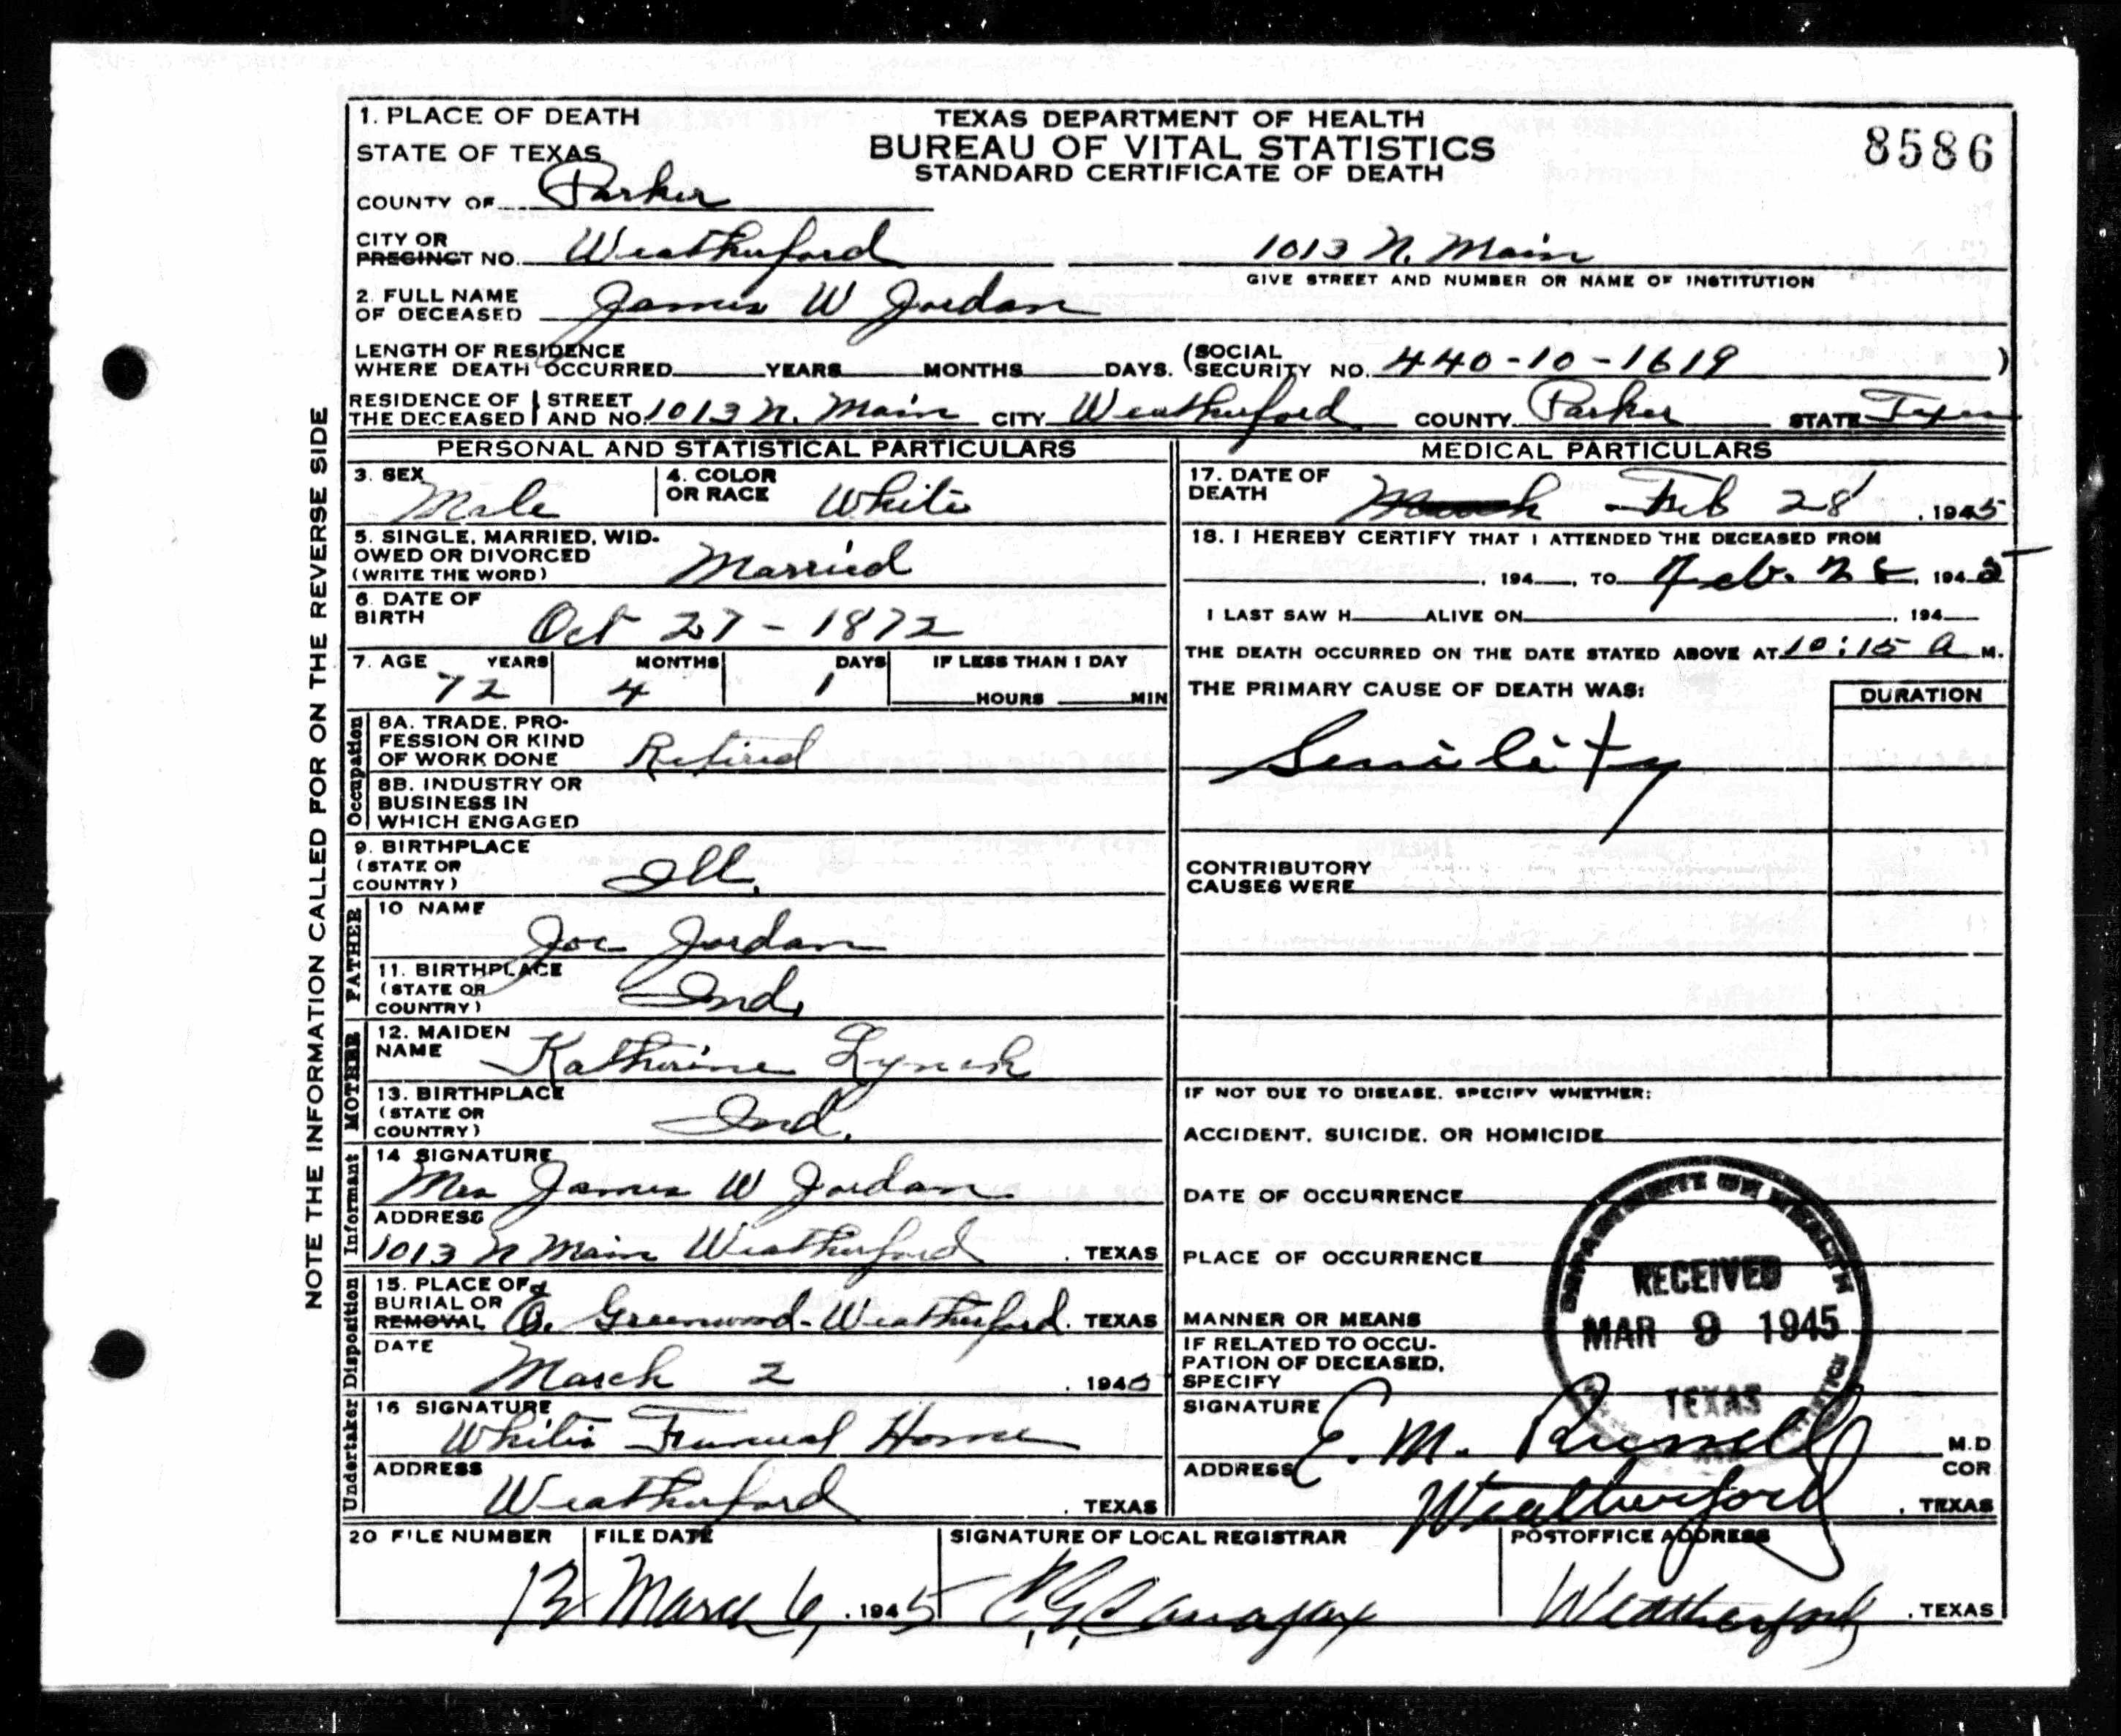 1. PLACE OF DEATH
STATE OF TEXAS
COUNTY OF Parker
TEXAS DEPARTMENT OF HEALTH
BUREAU OF VITAL STATISTICS
STANDARD CERTIFICATE OF DEATH
8586
CITY OR PRECINCT NO. Weatherford 1013 N. Main
GIVE STREET AND NUMBER OR NAME OF INSTITUTION
2. FULL NAME OF DECEASED James W Jordan
LENGTH OF RESIDENCE WHERE DEATH OCCURRED YEARS MONTHS DAYS. (SOCIAL SECURITY NO. 440-10-1619)
RESIDENCE OF THE DECEASED STREET AND NO. 1013 N. Main CITY Weatherford COUNTY Parker STATE Texas
NOTE THE INFORMATION CALLED FOR ON THE REVERSE SIDE
PERSONAL AND STATISTICAL PARTICULARS
3. SEX Male
4. COLOR OR RACE White
5. SINGLE, MARRIED, WIDOWED OR DIVORCED (WRITE THE WORD) Married
6. DATE OF BIRTH Oct 27 - 1872
7. AGE YEARS MONTHS DAYS IF LESS THAN 1 DAY
72 4 1 HOURS MIN
Occupation
8A. TRADE, PROFESSION OR KIND OF WORK DONE Retired
8B. INDUSTRY OR BUSINESS IN WHICH ENGAGED
9. BIRTHPLACE (STATE OR COUNTRY) Ill.
FATHER
10 NAME Joe Jordan
11. BIRTHPLACE (STATE OR COUNTRY) Ind.
MOTHER
12. MAIDEN NAME Katherine Lynch
13. BIRTHPLACE (STATE OR COUNTRY) Ind.
Informant
14 SIGNATURE Mrs James W Jordan
ADDRESS 1013 N Main Weatherford . TEXAS
Disposition
15. PLACE OF BURIAL OR REMOVAL Greenwood - Weatherford. TEXAS
DATE March 2 . 1945
Undertaker
16 SIGNATURE White's Funeral Home
ADDRESS Weatherford . TEXAS
MEDICAL PARTICULARS
17. DATE OF DEATH March Feb 28 , 1945
18. I HEREBY CERTIFY THAT I ATTENDED THE DECEASED FROM
, 194 , TO Feb. 28, 1945
I LAST SAW H ALIVE ON , 194
THE DEATH OCCURRED ON THE DATE STATED ABOVE AT 10:15 A M.
THE PRIMARY CAUSE OF DEATH WAS: DURATION
Senility
CONTRIBUTORY CAUSES WERE
IF NOT DUE TO DISEASE, SPECIFY WHETHER:
ACCIDENT, SUICIDE, OR HOMICIDE
DATE OF OCCURRENCE
PLACE OF OCCURRENCE
MANNER OR MEANS
IF RELATED TO OCCUPATION OF DECEASED, SPECIFY
DEPARTMENT OF HEALTH
RECEIVED
MAR 9 1945
TEXAS
SIGNATURE E. M. Russell M.D COR
ADDRESS Weatherford . TEXAS
20 FILE NUMBER FILE DATE SIGNATURE OF LOCAL REGISTRAR POSTOFFICE ADDRESS
13 March 6, . 1945 Weatherford . TEXAS